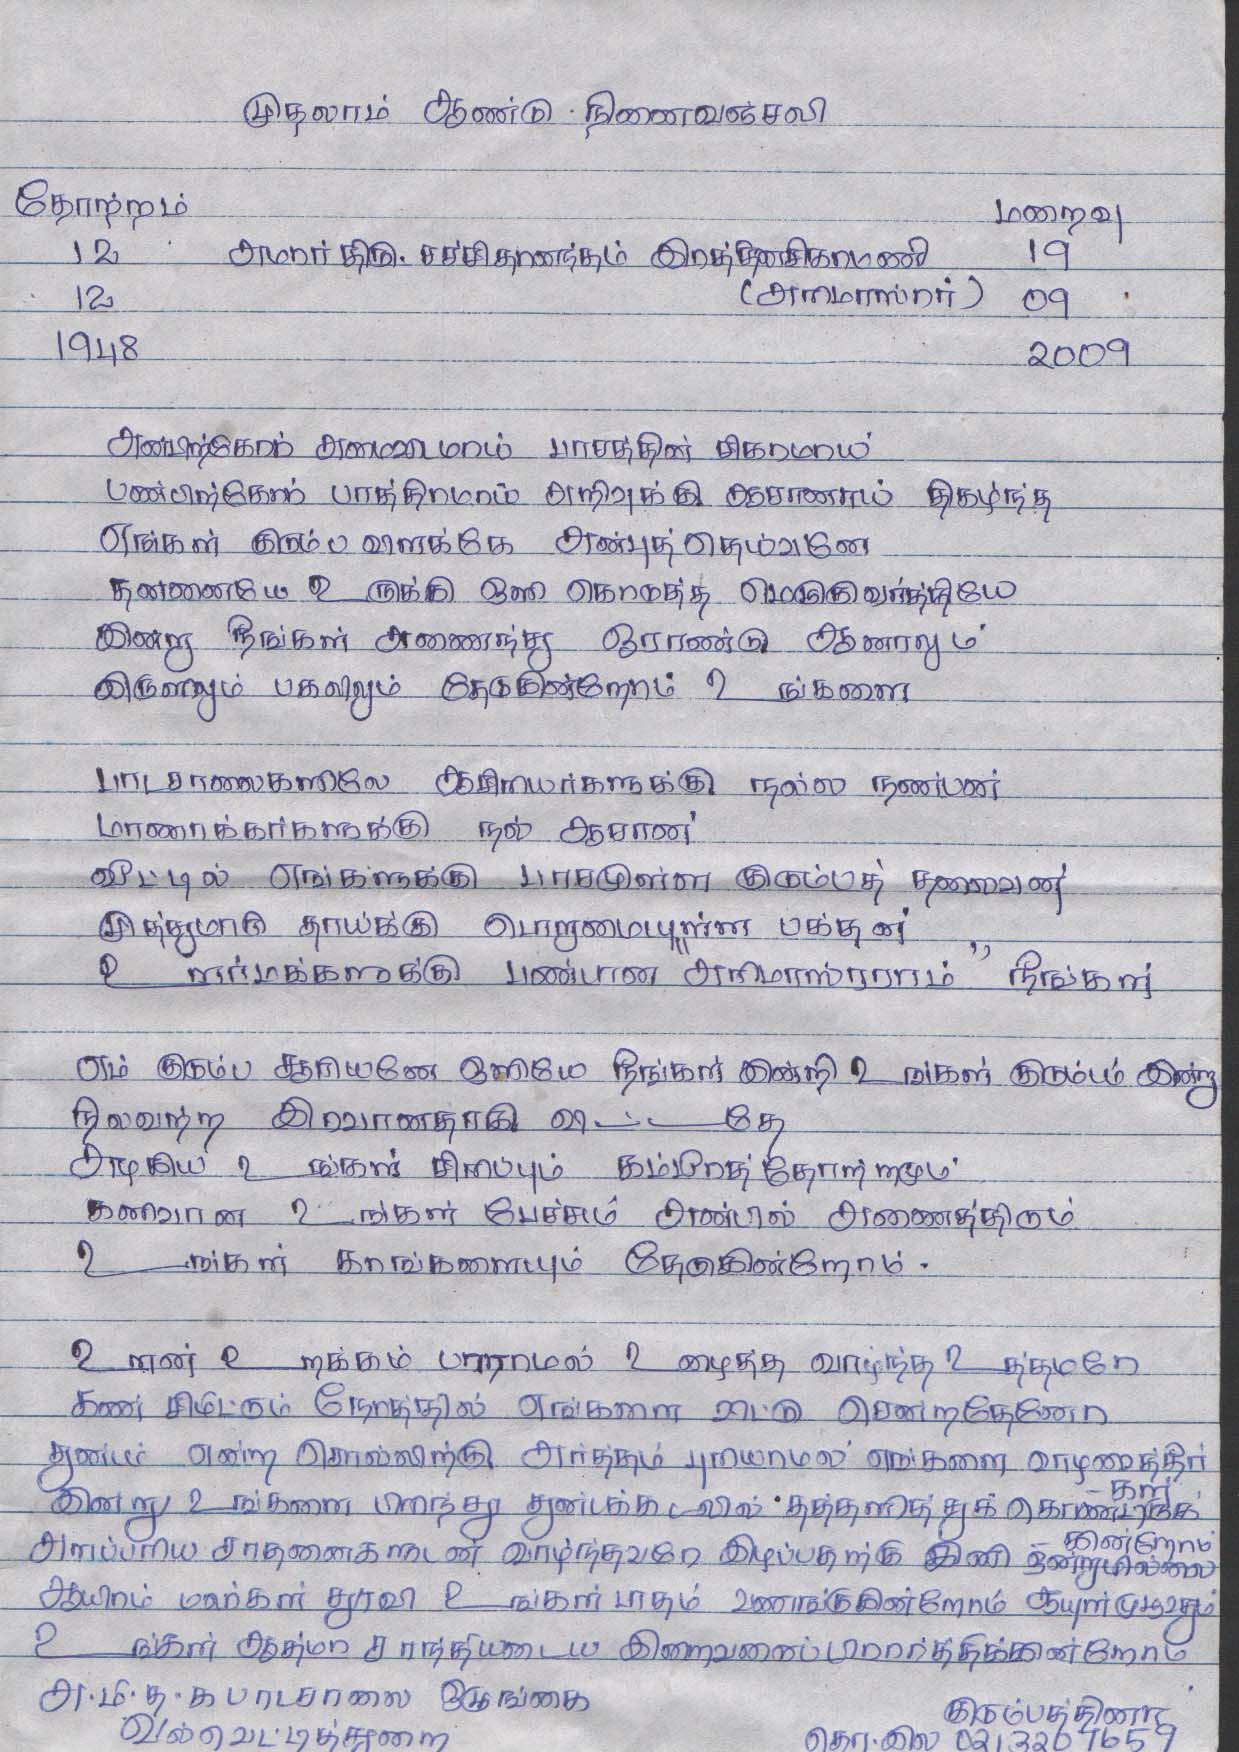 முதலாம் ஆண்டு நினைவஞ்சலி
தோற்றம்
மறைவு
12 அமரர் திரு. சச்சிதானந்தம் இரத்தினசிகாமணி 19
12 (அரிமாஸ்ரர்) 09
1948 2009
அன்பிற்கோர் பாசத்தின் சிகரமாய்
பண்பிற்கோர் பாத்திரமாய் அறிவுக்கு ஆசானாய் திகழ்ந்த
எங்கள் குடும்ப விளக்கே அன்புத்தெய்வமே
தன்னையே உருக்கி ஒளி கொடுத்த மெழுகுவர்த்தியே
இன்று நீங்கள் அணைந்து ஓராண்டு ஆனாலும்
இரவிலும் பகலிலும் தேடுகின்றோம் உங்களை
பாடசாலைகளிலே ஆசிரியர்களுக்கு நல்ல நண்பன்
மாணாக்கர்களுக்கு நல் ஆசான்
வீட்டில் எங்களுக்கு பாசமுள்ள குடும்பத் தலைவன்
முத்துமாரி தாய்க்கு பொறுமையுள்ள பக்தன்
உளர்மக்களுக்கு பண்பான "அரிமாஸ்ரராம்" நீங்கள்
எம் குடும்ப சூரியனே ஒளியே நீங்கள் இன்றி உங்கள் குடும்பம் இன்று
நிலவற்ற இரவானதாகி விட்டதே
அழகிய உங்கள் சிரிப்பும் கம்பீரத்தோற்றமும்
கனிவான உங்கள் பேச்சும் அன்பில் அணைத்திடும்
உங்கள் கரங்களையும் தேடுகின்றோம்.
உளண் உறக்கம் பாராமல் உழைத்து வாழ்ந்த உத்தமரே
கண் சிமிட்டும் நேரத்தில் எங்களை விட்டு சென்றதேனோ
துன்பம் என்ற சொல்லிற்கு அர்த்தம் புரியாமல் எங்களை வாழவைத்தீர்
-கள்
இன்று உங்களை பிரிந்து துன்பக்கடலில் தத்தளித்துக் கொண்டிருக்
-கின்றோம்
அளப்பரிய சாதனைகளுடன் வாழ்ந்தவரே இழப்பதற்கு இனி ஒன்றுமில்லை
ஆயிரம் மலர்கள் தூவி உங்கள் பாதம் வணங்குகின்றோம் ஆயுள் முழுவதும்
உங்கள் ஆத்மா சாந்தியடைய இறைவனைப் பிரார்த்திக்கின்றோம்
அ.மி.த.க பாடசாலை
குடும்பத்தினர்
வல்வெட்டித்துறை
தொ.இல 0213207659